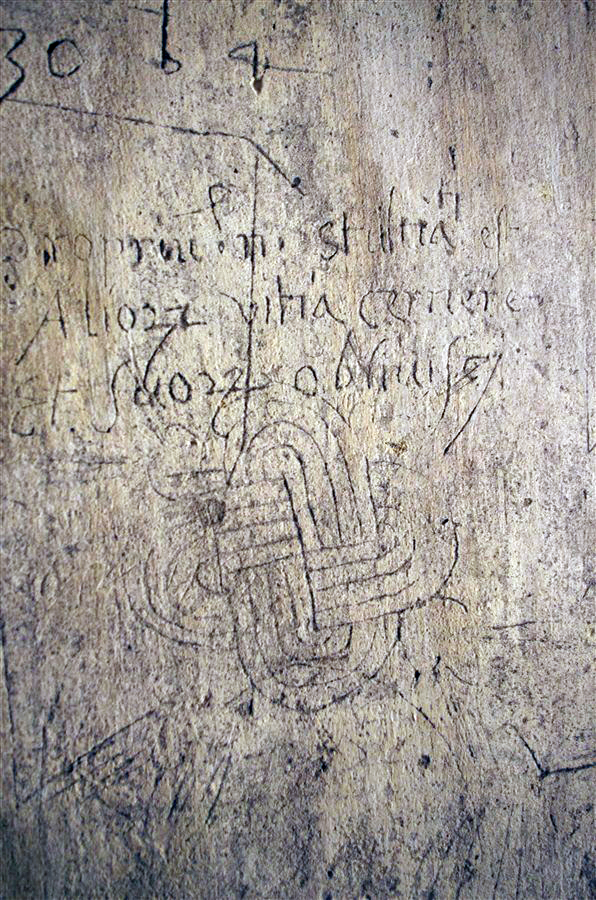 30 4
propriū stultitia est
Aliorꝝ vitia cernere
Et suorꝝ oblivisci